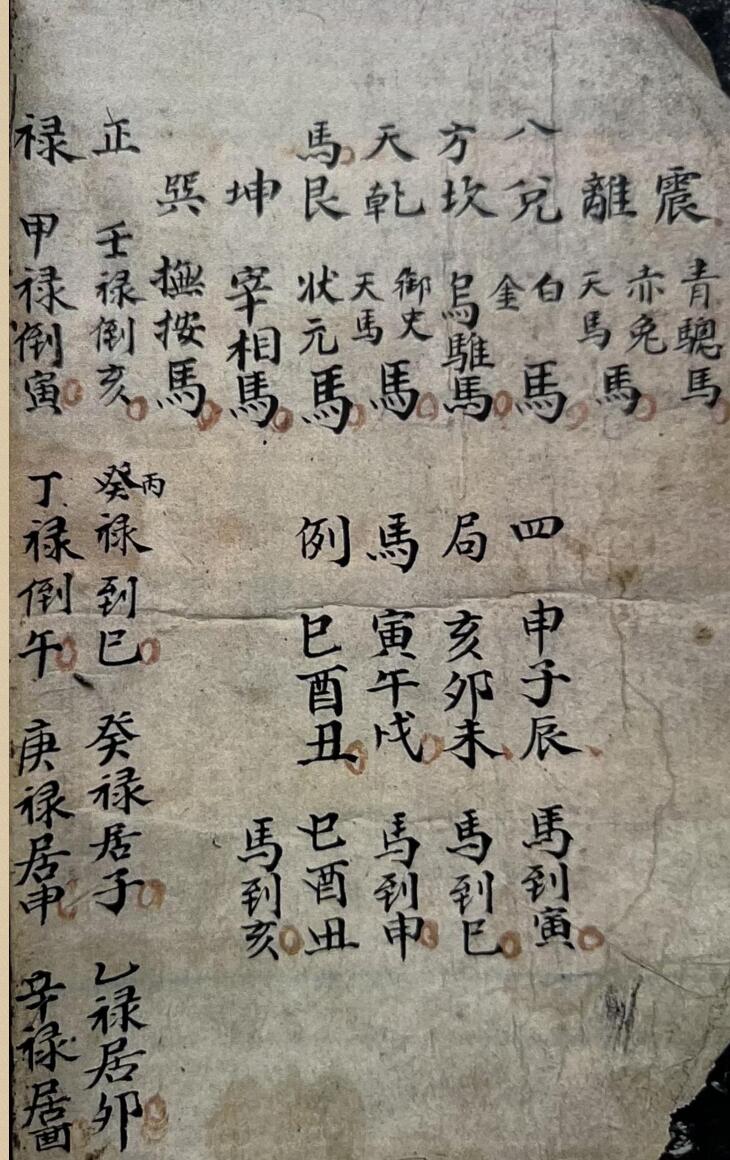 震 青驄馬
離 赤免天馬馬
八 兌 白金馬 四 申子辰 馬到寅
方 坎 烏騅馬 局 亥卯未 馬到巳
天 乾 御史天馬馬 馬 寅午戌 馬到申
馬 艮 状元馬 例 巳酉丑 巳酉丑
坤 宰相馬 馬到亥
巽 撫按馬
正 壬禄倒亥 癸丙禄到巳 癸禄居子 乙禄居卯
禄 甲禄倒寅 丁禄倒午 庚禄居申 辛禄居酉